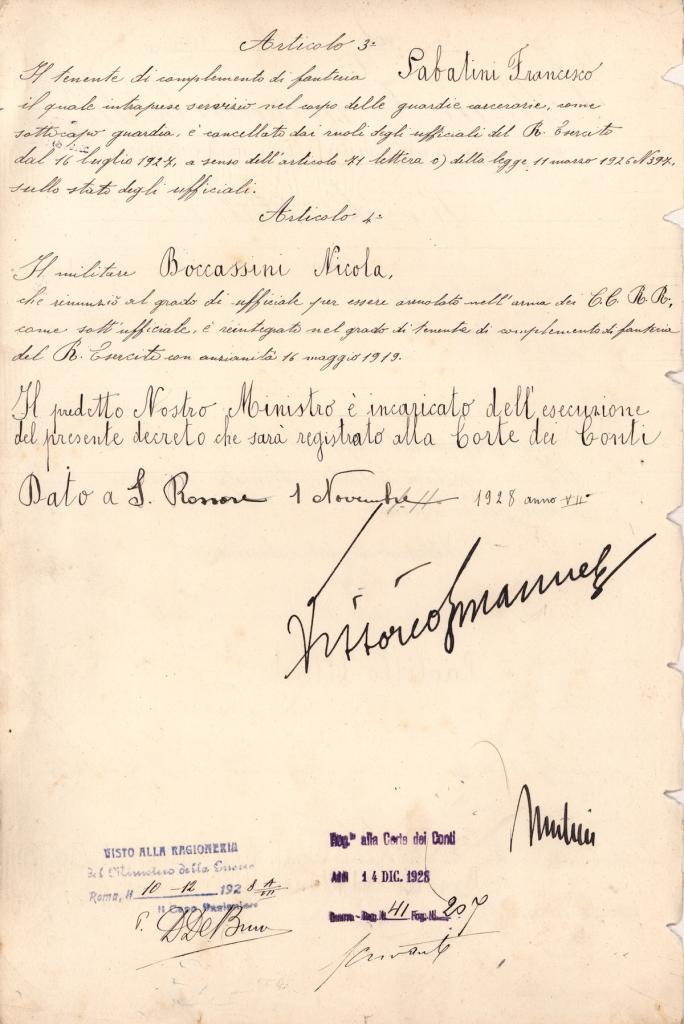 Articolo 3°
Il tenente di complemento di fanteria Sabatini Francesco
il quale intraprese servizio nel corpo delle guardie carcerarie, come
sottocapo guardia, è cancellato dai ruoli degli ufficiali del R. Esercito
dal 16 luglio 1927, a senso dell'articolo 71 lettera o) della legge 11 marzo 1926 N 397,
sullo stato degli ufficiali.
Articolo 4°
Il militare Boccassini Nicola,
che rinunziò al grado di ufficiale per essere arruolato nell'arma dei CC. RR.,
come sott'ufficiale, è reintegrato nel grado di tenente di complemento di fanteria
del R. Esercito con anzianità 16 maggio 1919.
Il predetto Nostro Ministro è incaricato dell'esecuzione
del presente decreto che sarà registrato alla Corte dei Conti
Dato a S. Rossore 1 Novembre 1928 anno VII°
Vittorio Emanuele
Mussolini
VISTO ALLA RAGIONERIA
del Ministero della Guerra
Roma, li 10-12 1928 A VII
Il Capo Ragioniere
Reg.to alla Corte dei Conti
Addì 14 DIC. 1928
Guerra - Reg. N. 41 Fog. N. 207